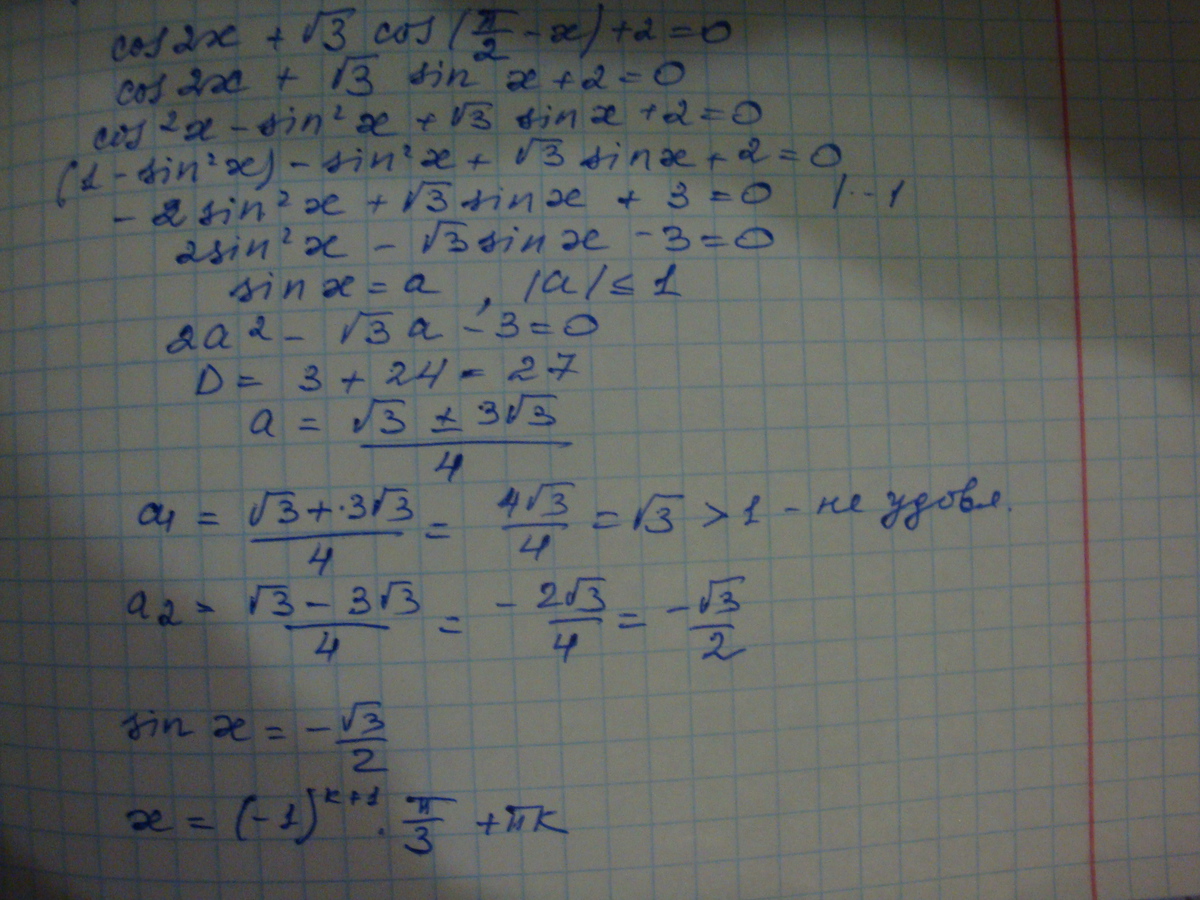 cos 2x + √3 cos(π/2 - x) + 2 = 0
cos 2x + √3 sin x + 2 = 0
cos²x - sin²x + √3 sin x + 2 = 0
(1 - sin²x) - sin²x + √3 sin x + 2 = 0
- 2 sin²x + √3 sin x + 3 = 0 | · -1
2sin²x - √3 sin x - 3 = 0
sin x = a , |a| ≤ 1
2a² - √3 a - 3 = 0
D = 3 + 24 = 27
a = (√3 ± 3√3)/4
a₁ = (√3 + 3√3)/4 = 4√3/4 = √3 > 1 - не удовл.
a₂ = (√3 - 3√3)/4 = - 2√3/4 = -√3/2
sin x = - √3/2
x = (-1)^(k+1) · π/3 + πk